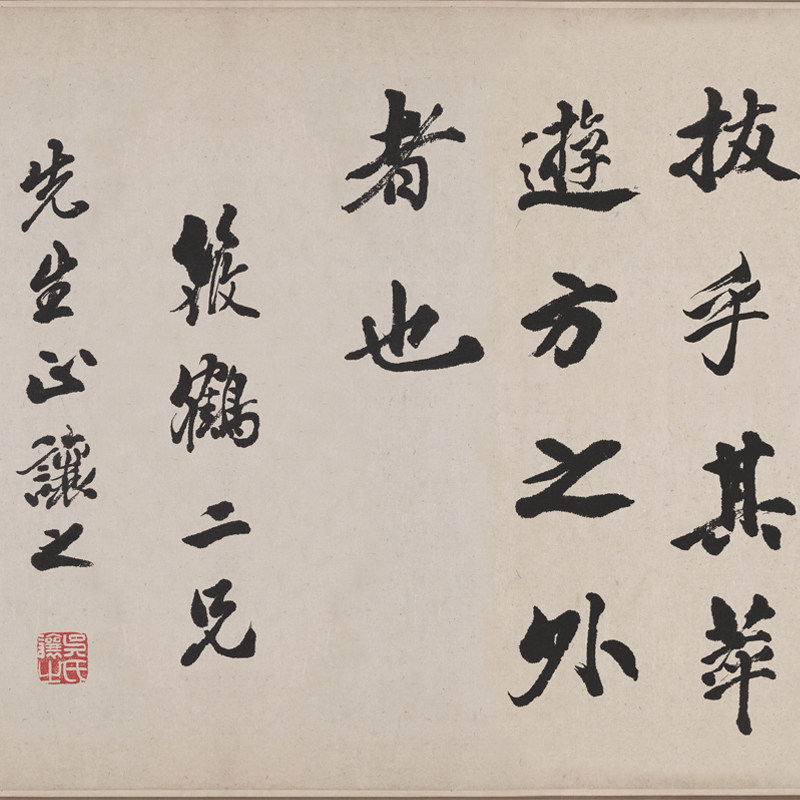 拔乎其萃
遊方之外
者也
筱鶴二兄
先生正讓之
吳氏讓之